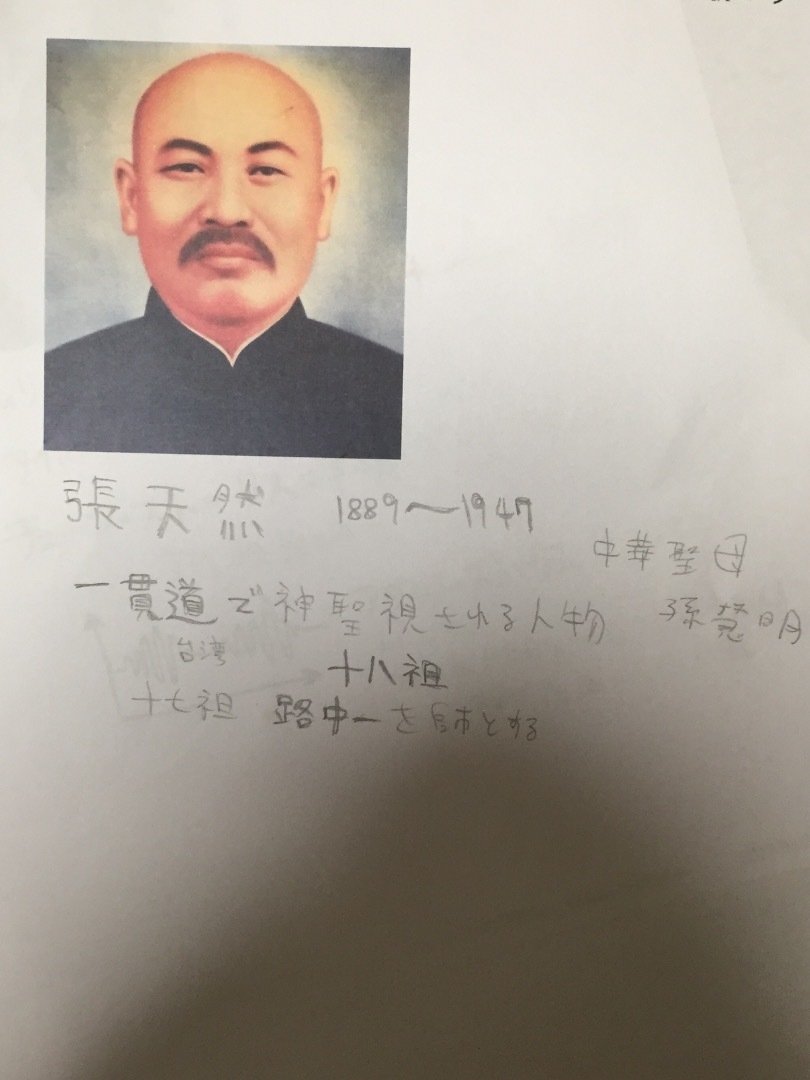 張天然 1889〜1947
中華聖母
一貫道で神聖視される人物 孫慧明
台湾
十八祖
十七祖 路中一を師とする